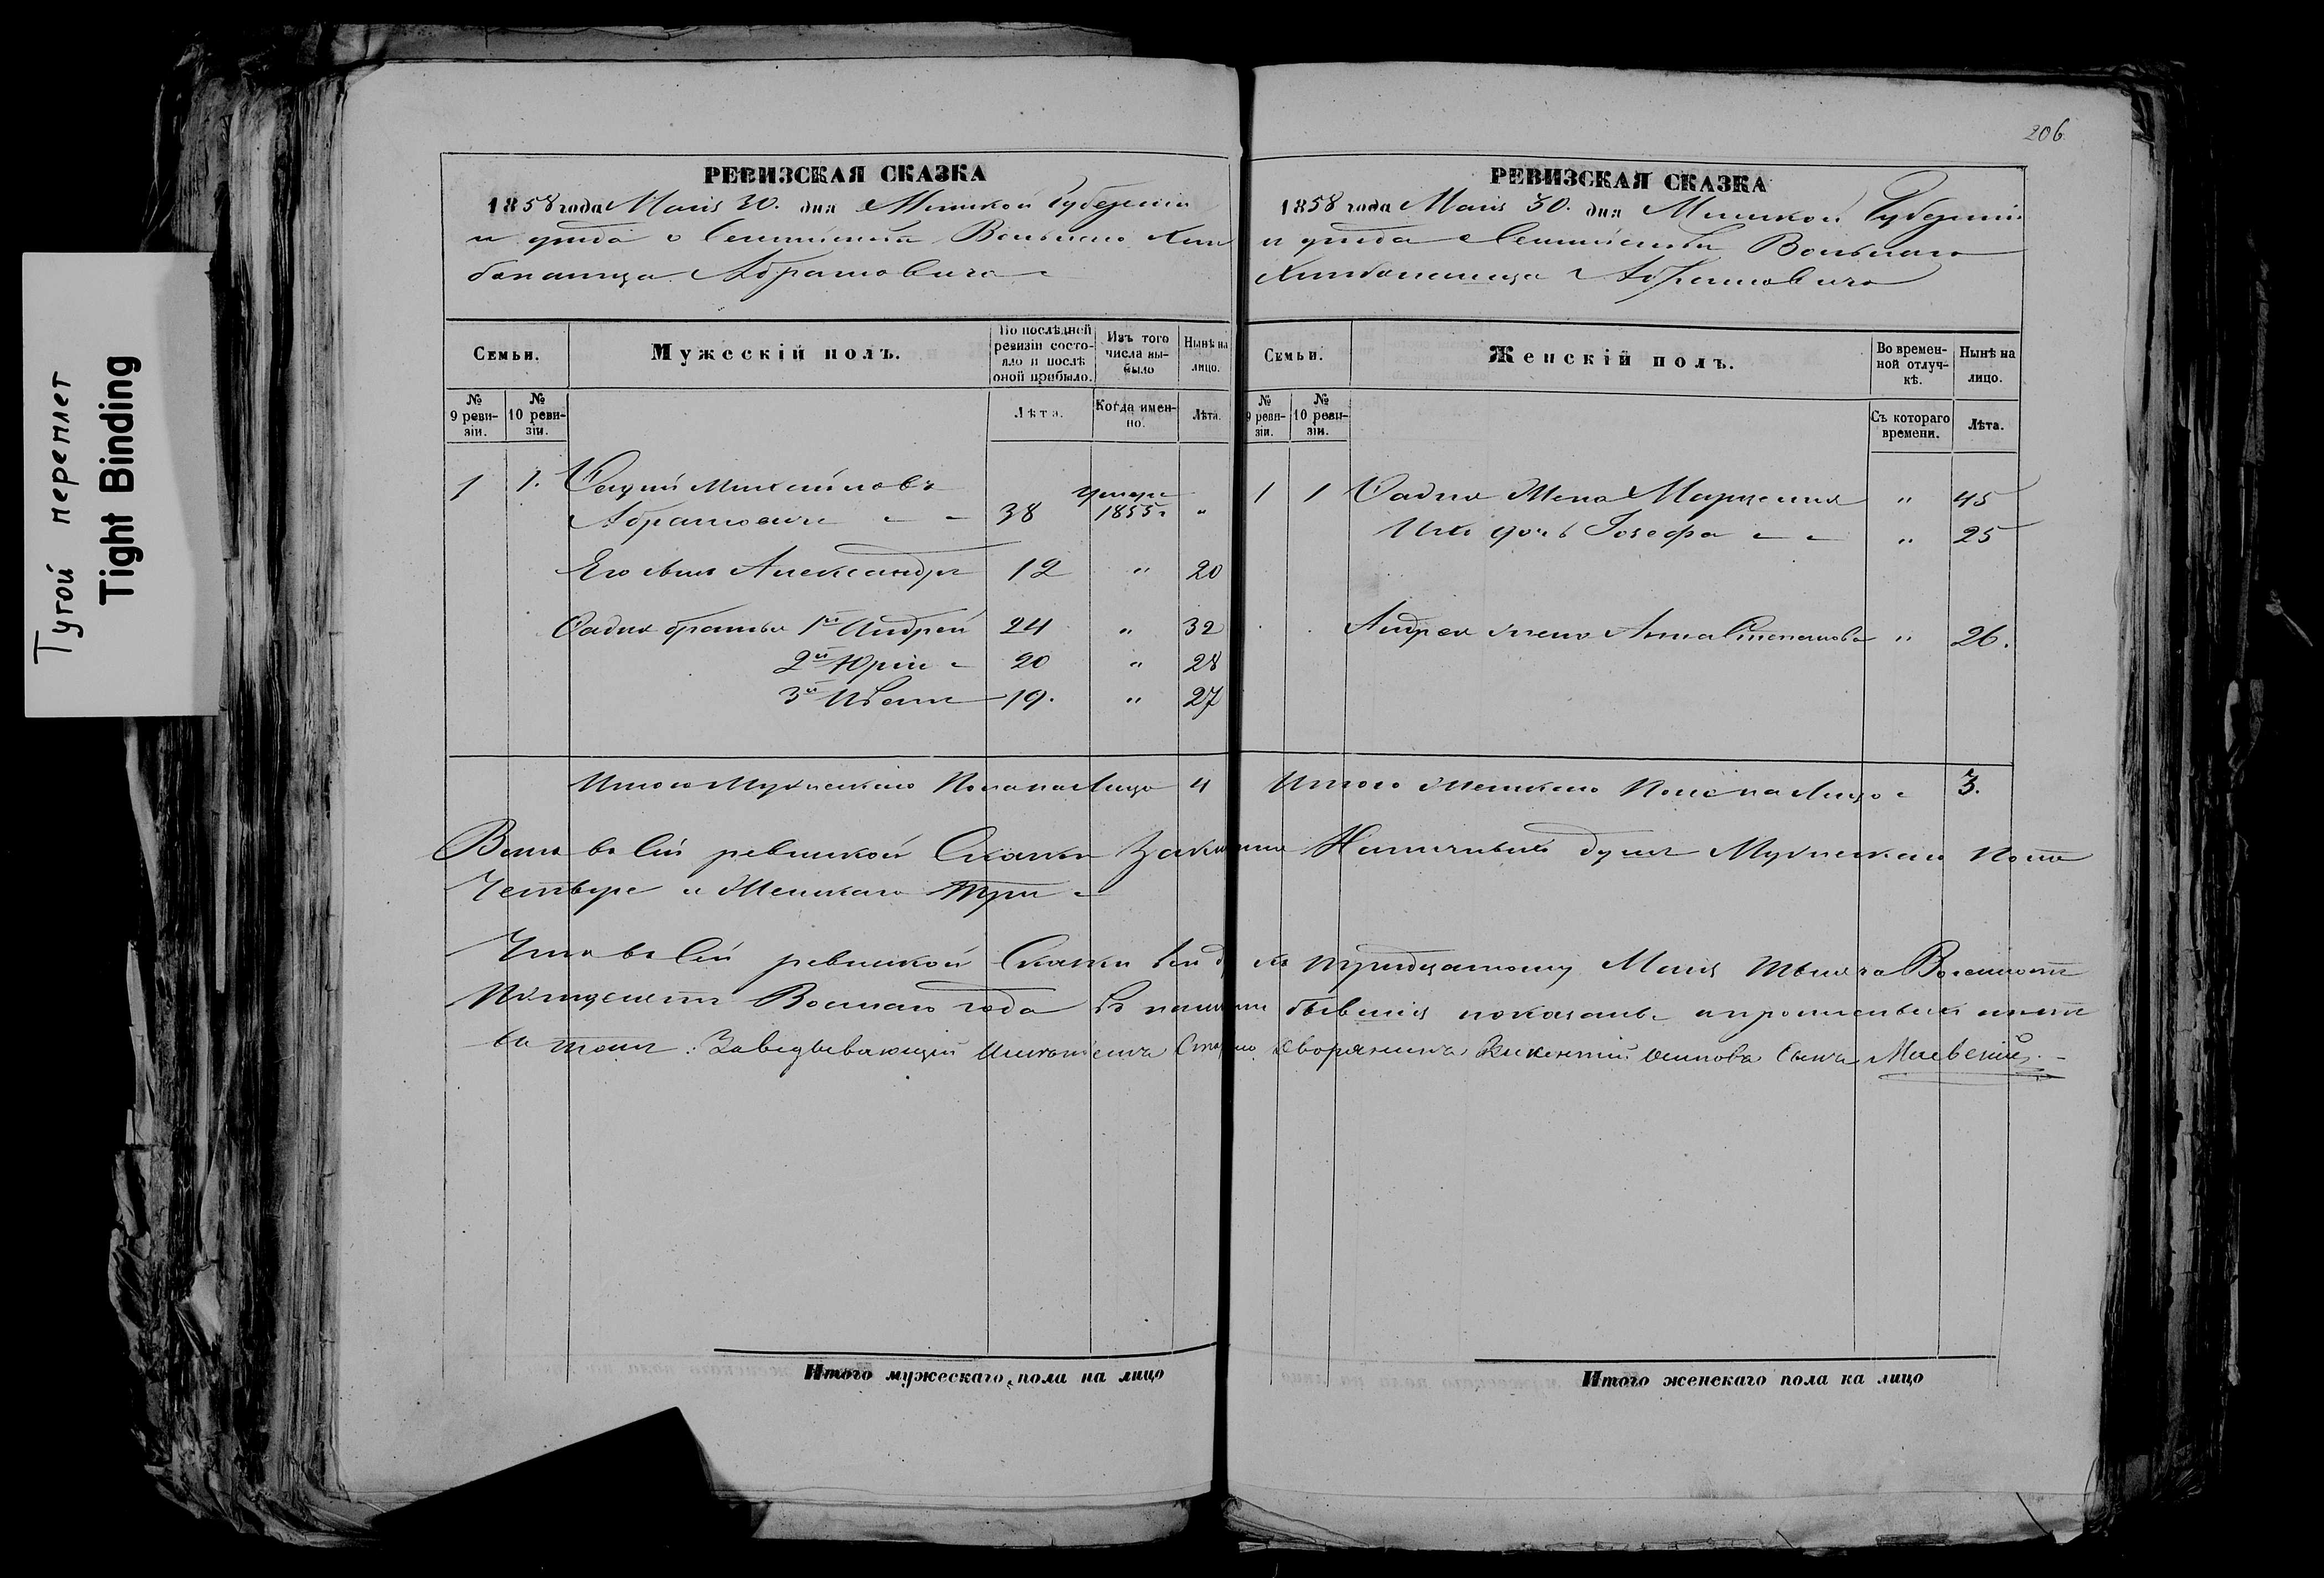 Тугой переплет
Tight Binding
206
РЕВИЗСКАЯ СКАЗКА
1858 года Маія 30. дня Минской Губерніи
и уѣзда о Семѣйствѣ Вольнаго Хлѣ
бопашца Абрамовича
Семьи.
Мужескій полъ.
По послѣдней ревизіи состояло и послѣ оной прибыло.
Изъ того числа выбыло
Нынѣ на лицо.
№ 9 ревизіи.
№ 10 ревизіи.
Лѣта.
Когда именно.
Лѣта.
1 1. Михайловъ
Абрамовичъ 38 умеръ 1855 г "
Его сынъ Александръ 12 " 20
братья 1й Андрей 24 " 32
2й Юрій 20 " 28
3й Иванъ 19. " 27
Итого Мужескаго Пола на Лицо 4
РЕВИЗСКАЯ СКАЗКА
1858 года Маія 30. дня Минской Губерніи
и уѣзда о Семѣйствѣ Вольнаго
Хлѣбопашца Абрамовича
Семьи.
Женскій полъ.
Во временной отлучкѣ.
Нынѣ на лицо.
№ 9 ревизіи.
№ 10 ревизіи.
Съ котораго времени.
Лѣта.
1 1 Жена Марцелія " 45
Ихъ дочь Іозефа " 25
Андрея жена Анна Степанова " 26.
Итого Женскаго Пола на Лицо 3.
Всего въ сей ревизкой Сказки Наличныхъ душъ Мужескаго Пола
Четыре и Женскаго три
Что въ сей ревизкой Сказки къ тридцатому Маія тысяча Восемсотъ
Пятдесятъ Восмаго года въ бывшія показаны и прописныхъ нетъ
въ томъ: Заведывающій Имѣніемъ Дворянинъ Викентій Осиповъ Сынъ
Итого мужескаго пола на лицо
Итого женскаго пола на лицо